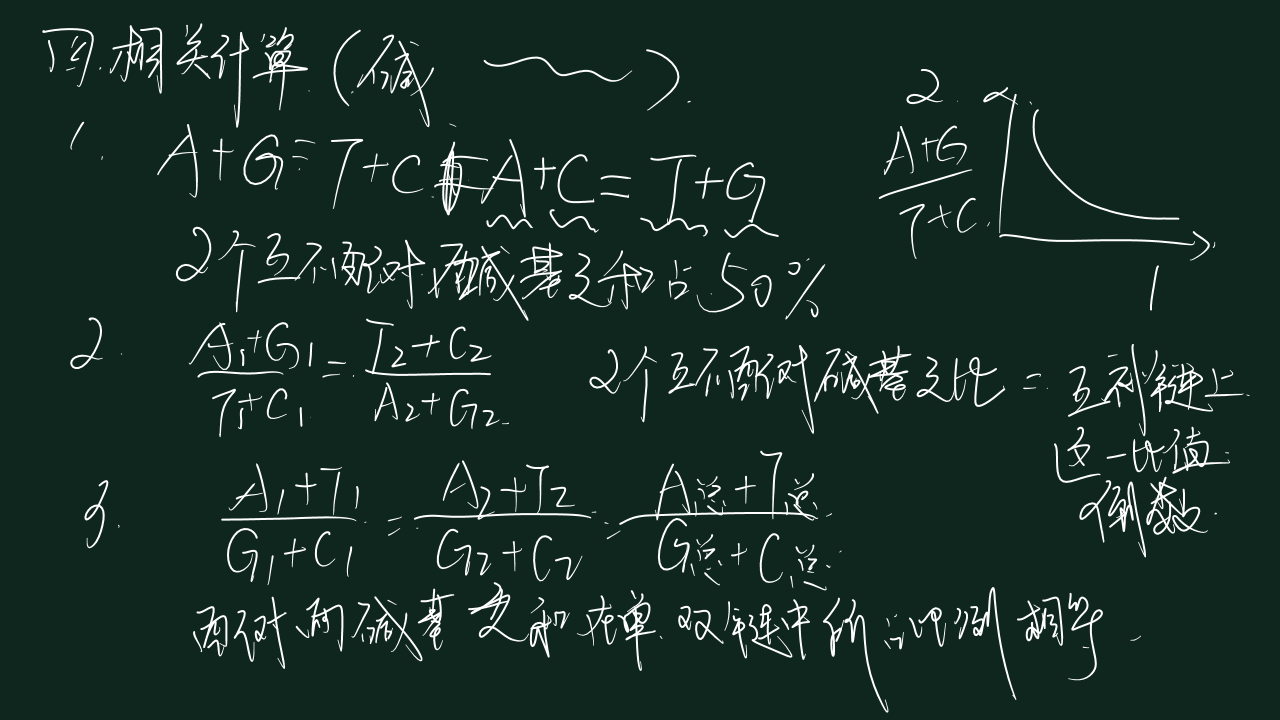 四.相关计算(碱 ~~~).
1. A+G=T+C A+C=T+G
2个互不配对碱基之和占50%
2. (A₁+G₁)/(T₁+C₁)=(T₂+C₂)/(A₂+G₂) 2个互不配对碱基之比=互补链上
这一比值
倒数.
3. (A₁+T₁)/(G₁+C₁)=(A₂+T₂)/(G₂+C₂)=(A总+T总)/(G总+C总)
配对的碱基之和在单.双链中所占比例相等.
2.
(A+G)/(T+C)
1